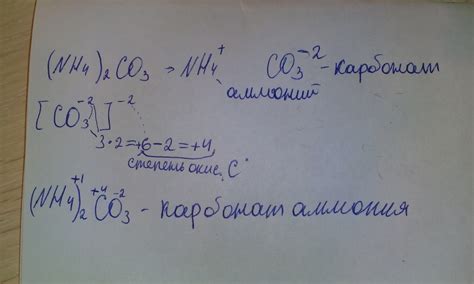 (NH4)2CO3 = NH4+ CO3-2 - карбонат
аммоний
[CO3-2]-2
3·2=+6-2=+4
степень окис. С
(NH4)+12 C+4O3-2 - карбонат аммония